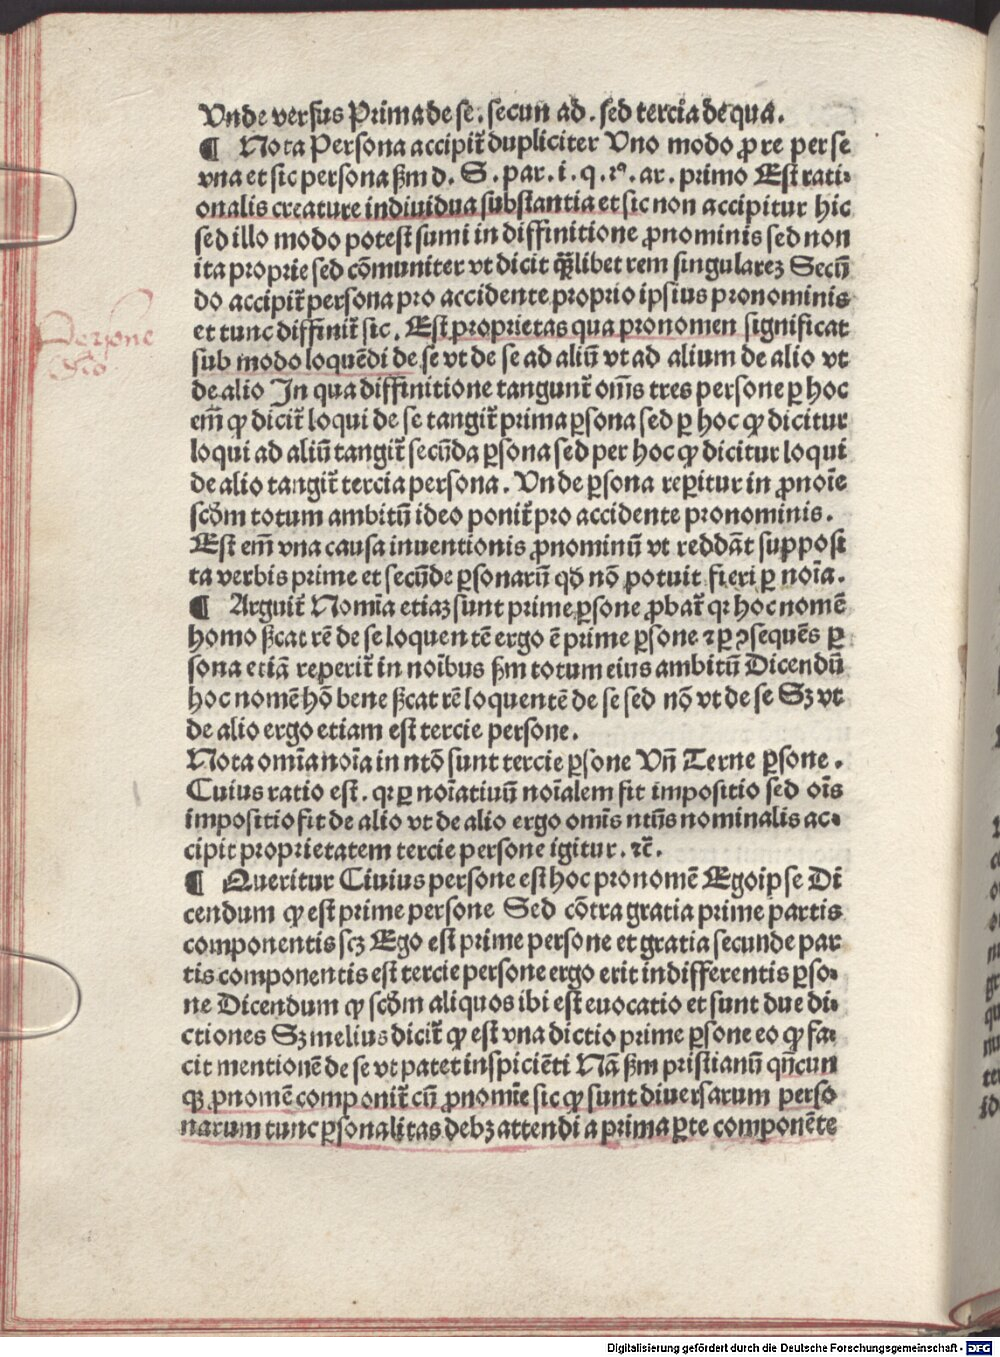 Vnde versus Prima de se. secun ad. sed tercia de qua.
¶ Nota Persona accipit᷑ dupliciter Vno modo ꝓ re per se
vna et sic persona ẜm d. S. par. i. q. ar. primo Est rati-
onalis creature indiuidua substantia et sic non accipitur hic
sed illo modo potest sumi in diffinitione ꝓnominis sed non
ita proprie sed cōmuniter vt dicit q̄libet rem singularez Secū
do accipit᷑ persona pro accidente proprio ipsius pronominis
et tunc diffinit᷑ sic. Est proprietas qua pronomen significat
Persone
sub modo loquēdi de se vt de se ad aliū vt ad alium de alio vt
de alio In qua diffinitione tangunt᷑ om̄s tres persone ꝑ hoc
em̄ ꝙ dicit᷑ loqui de se tangit᷑ prima ꝑsona sed ꝑ hoc ꝙ dicitur
loqui ad aliū tangit᷑ secūda ꝑsona sed per hoc ꝙ dicitur loqui
de alio tangit᷑ tercia persona. Vnde ꝑsona reꝑitur in ꝓnoīe
scd̄m totum ambitū ideo ponit᷑ pro accidente pronominis.
Est em̄ vna causa inuentionis ꝓnominū vt reddāt supposi
ta verbis prime et secūde ꝑsonarū qd̄ nō potuit fieri ꝑ noīa.
¶ Arguit᷑ Nomīa etiaz sunt prime ꝑsone ꝓbat᷑ qꝛ hoc nomē
homo ẜcat rē de se loquentē ergo ē prime ꝑsone ⁊ ꝑ ꝯsequēs ꝑ
sona etiā reperit᷑ in noībus ẜm totum eius ambitū Dicendū
hoc nomē hō bene ẜcat rē loquentē de se sed nō vt de se Sꝫ vt
de alio ergo etiam est tercie persone.
Nota omīa noīa in ntō sunt tercie ꝑsone Vn̄ Terne ꝑsone.
Cuius ratio est. qꝛ ꝑ noīatiuū noīalem fit impositio sed oīs
impositio fit de alio vt de alio ergo omīs ntūs nominalis ac-
cipit proprietatem tercie persone igitur. ⁊c̄.
¶ Queritur Ciuius persone est hoc pronomē Egoipse Di
cendum ꝙ est prime persone Sed cōtra gratia prime partis
componentis scꝫ Ego est prime persone et gratia secunde par
tis componentis est tercie persone ergo erit indifferentis ꝑso-
ne Dicendum ꝙ scd̄m aliquos ibi est euocatio et sunt due di-
ctiones Sꝫ melius dicit᷑ ꝙ est vna dictio prime ꝑsone eo ꝙ fa-
cit mentionē de se vt patet inspiciēti Nā ẜm pristianū qn̄cun
qꝫ ꝓnomē componit᷑ cū ꝓnomīe sic ꝙ sunt diuersarum perso
narum tunc ꝑsonalitas debꝫ attendi a prima ꝑte componēte
Digitalisierung gefördert durch die Deutsche Forschungsgemeinschaft - DFG